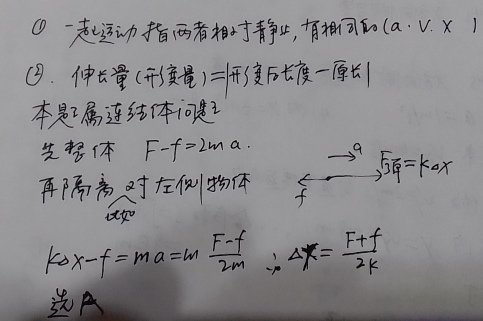 ① 一起运动指两者相对静止,有相同的(a、V、X )
②. 伸长量(形变量)=|形变后长度-原长|
本题属连结体问题
先整体 F-f=2ma.
再隔离对左侧物体
比如
a
f
F弹=kΔx
kΔx-f=ma=m (F-f)/2m ∴Δx=(F+f)/2k
选A